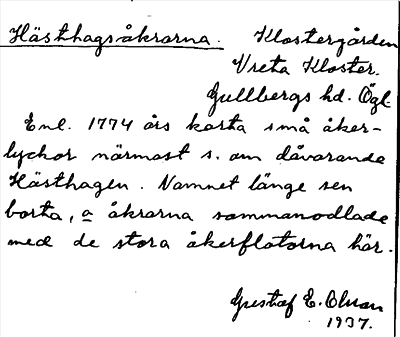 Hästhagsåkrarna. Klostergården
Vreta Kloster.
Gullbergs hd. Ögl.
Enl. 1774 års karta små åker-
lyckor närmast s. om dåvarande
Hästhagen. Namnet länge sen
borta, o åkrarna sammanodlade
med de stora åkerflatorna här.
Gustaf E. Olsson
1937.